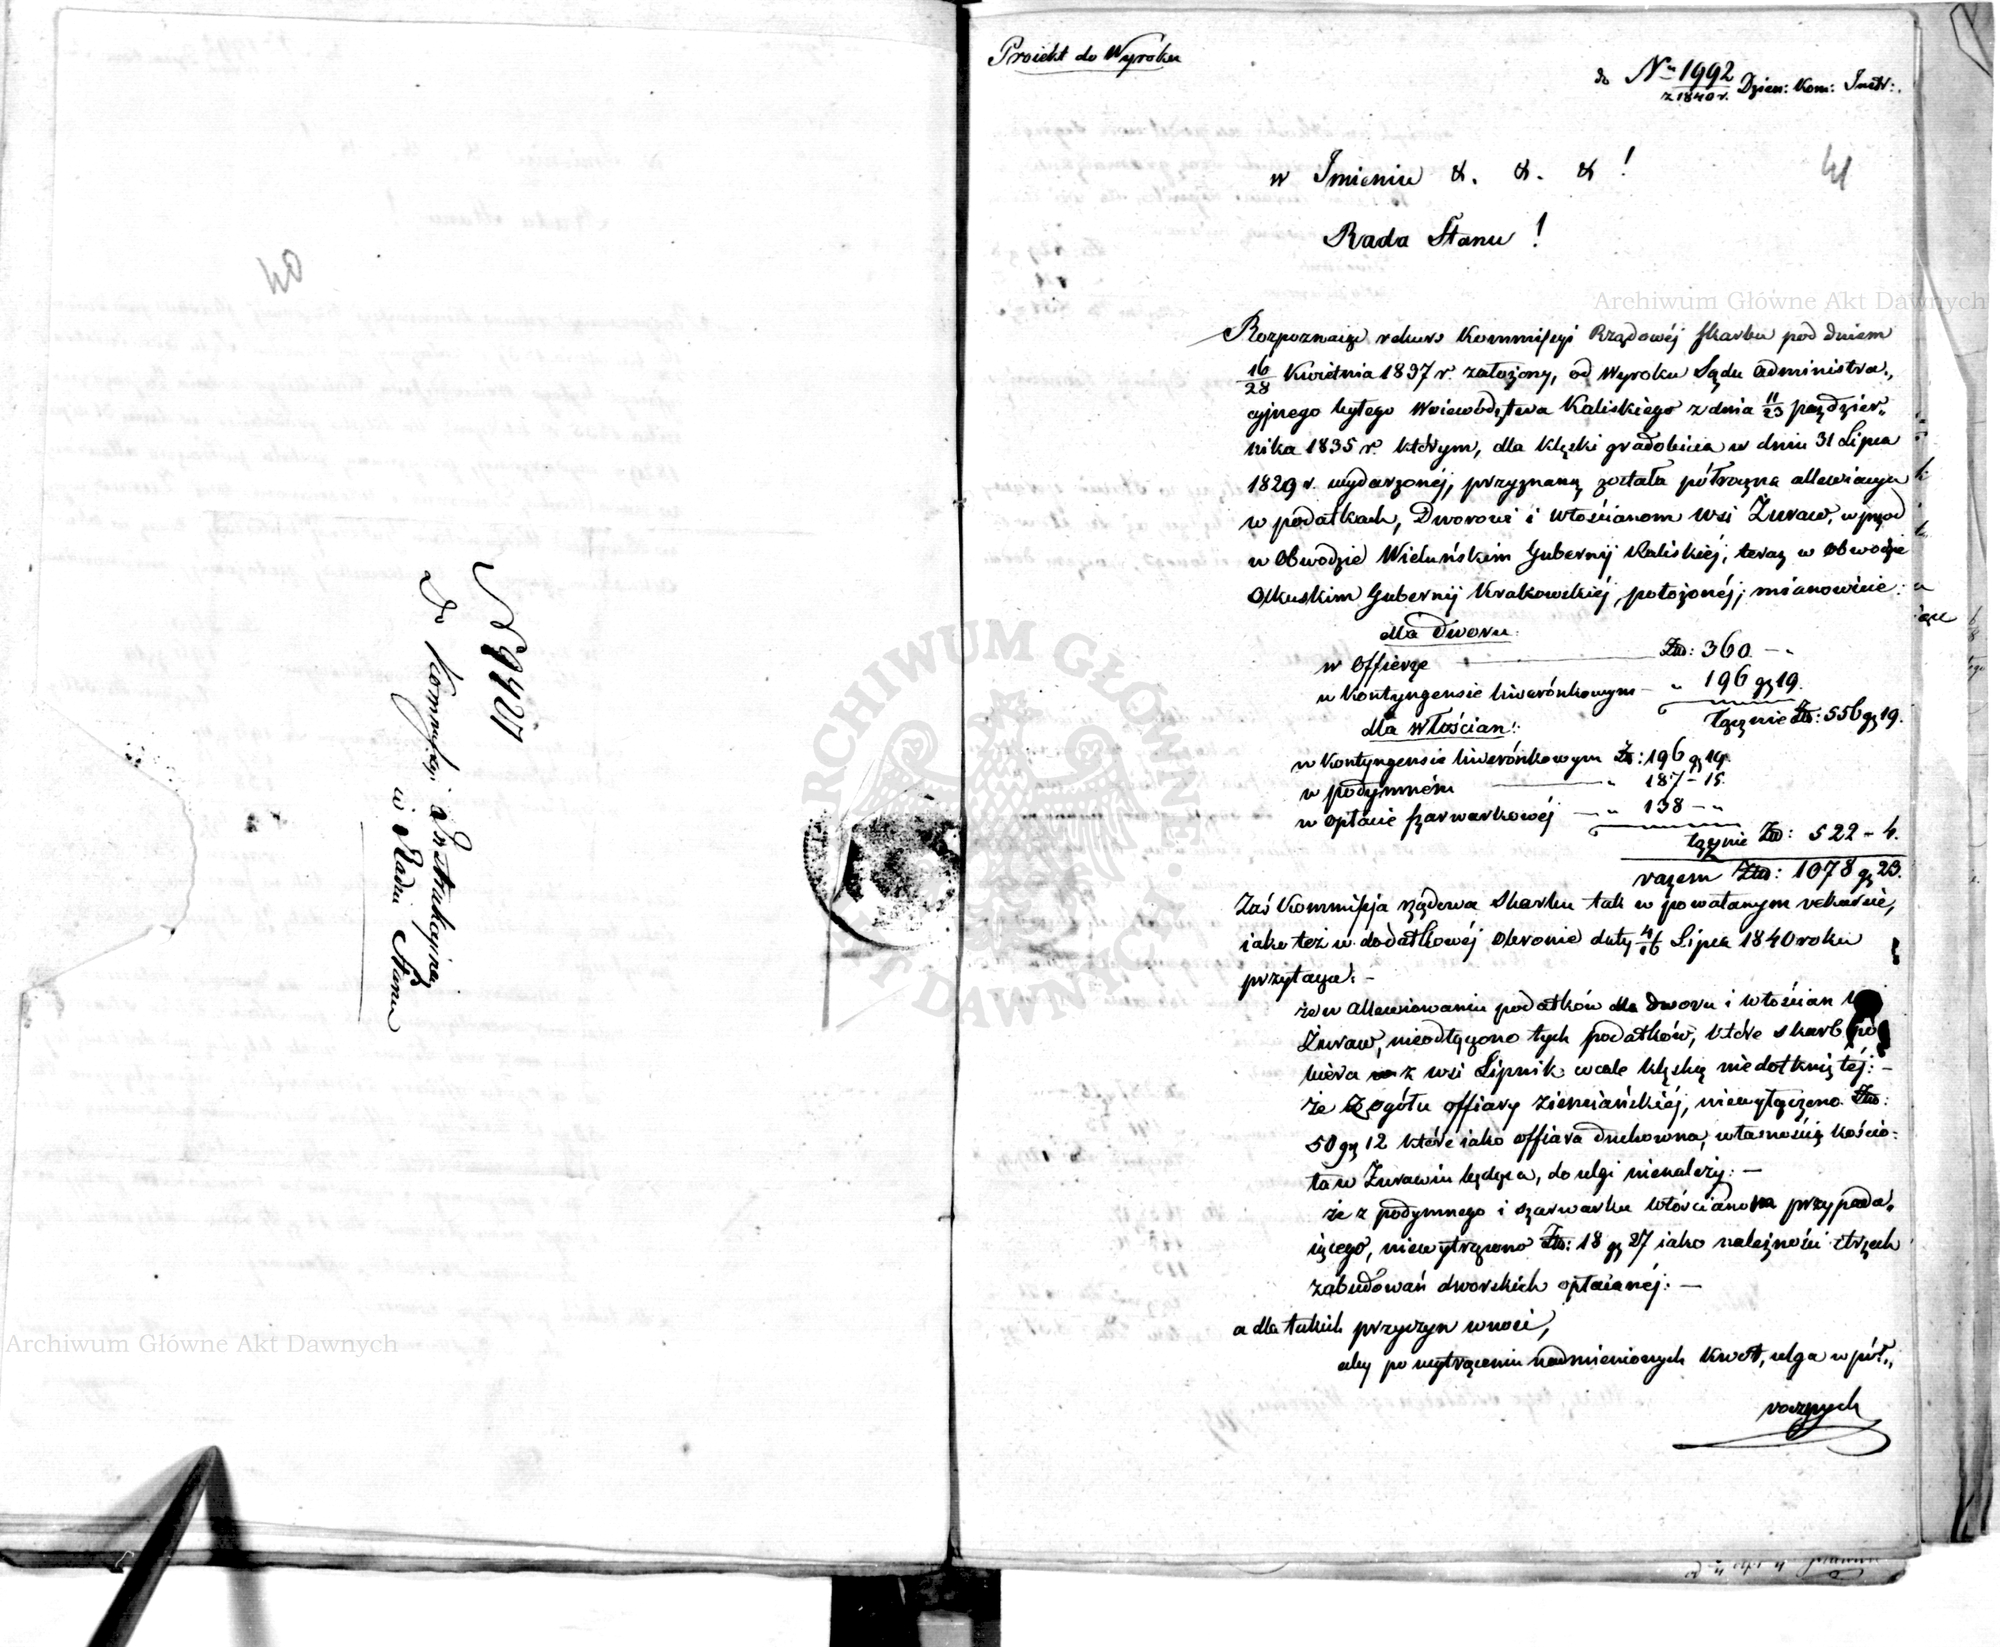 40
N 9427
Do Kommissyi Instrukcyjnej
w Radzie Stanu
Projekt do Wyroku
do Nru 1992 Dzien: Kom: Instr:
z 1840 r.
41
w Imieniu &. &. &!
Rada Stanu!
Rozpoznając rekurs Kommissyi Rządowéj Skarbu pod dniem
16/28 Kwietnia 1837 r. założony, od Wyroku Sądu Administra„
cyjnego byłego Województwa Kaliskiego z dnia 11/23 paździer„
nika 1835 r. którym, dla klęski gradobicia w dniu 31 Lipca
1829 r. wydarzonéj, przyznaną została półroczna allewiacya
w podatkach, Dworowi i Włościanom Wsi Żuraw, wprzod
w Obwodzie Wieluńskim Gubernij Kaliskiéj, teraz w Obwodzie
Olkuskim Gubernij Krakowskiéj, położonéj, mianowicie:
dla Dworu:
w Offierze Złp: 360 - „
w Kontyngensie liwerónkowym - „ 196 gr 19.
łącznie Złp: 556 gr 19.
dla Włościan:
w Kontyngensie liwerónkowym Zł: 196 gr 19.
w podymném „ 187 - 15.
w opłacie szarwarkowéj - „ 138 - „
łącznie Złp: 522 - 4.
razem Złp: 1078 gr 23.
Zaś Kommissja rządowa Skarbu tak w powołanym rekursie,
jako też w dodatkowéj Obronie daty 4/16 Lipca 1840 roku
przytacza: -
że w Allewiowaniu podatków dla Dworu i włościan
Żuraw, nieodłączono tych podatków, które skarb po
biera z wsi Lipnik wcale klęską niedotkniętéj: -
że z ogółu offiary ziemiańskiéj, niewyłączono Złp:
50 gr 12 które jako offiara duchowna, własnością kościo:
ła w Żurawiu będąca, do ulgi nienależy: -
że z podymnego i szarwarku włościanom przypada„
jącego, niewytrącono Złp: 18 gr 27 jako należności z trzech
zabudowań dworskich opłacanéj: -
a dla takich przyczyn wnosi,
aby po wytrąceniu nadmienionych kwot, ulga w pół„
rocznych
Archiwum Główne Akt Dawnych
Archiwum Główne Akt Dawnych
ARCHIWUM GŁÓWNE AKT DAWNYCH